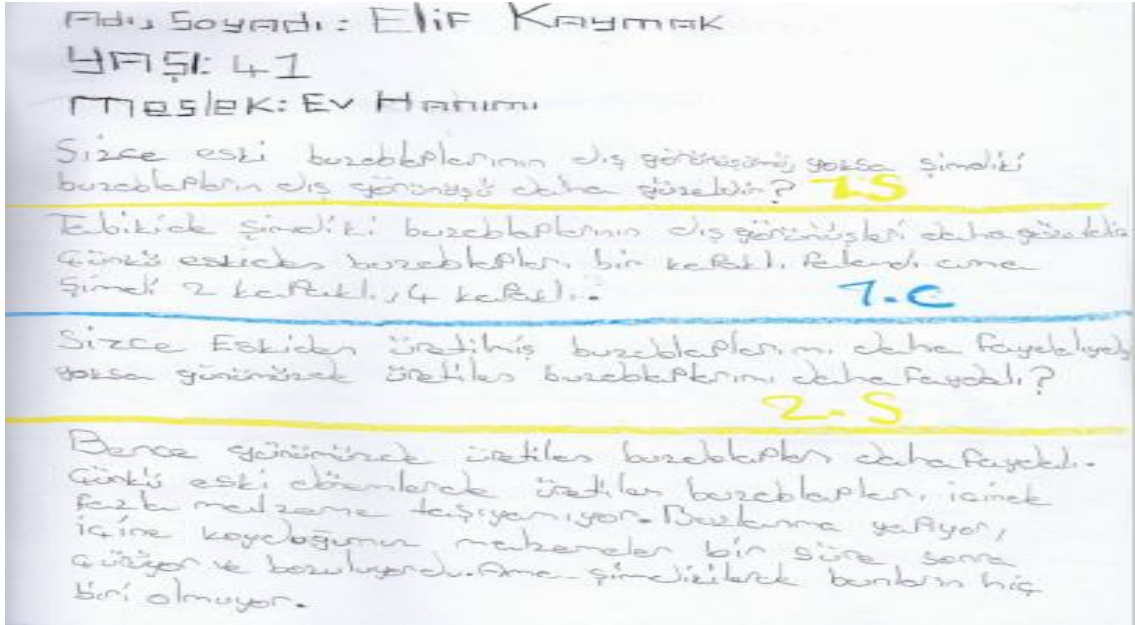 Adı, Soyadı: Elif Kaymak
YAŞI: 41
Meslek: Ev Hanımı
Sizce eski buzdolaplarının dış görünüşümü, yoksa şimdiki
buzdolapların dış görünüşü daha güzeldir? 1.S
Tabikide şimdiki buzdolaplarının dış görünüşleri daha güzeldir
Çünkü eskiden buzdolapları, bir kapaklı falandı ama
Şimdi 2 kapaklı, 4 kapaklı. 1.C
Sizce Eskiden üretilmiş buzdolaplarımı daha faydalıydı
yoksa günümüzde üretilen buzdolaplarımı daha faydalı?
2.S
Bence günümüzde üretilen buzdolapları daha faydalı.
Çünkü eski dönemlerde üretilen buzdolapları, içinde
fazla malzeme taşıyamıyor. Buzlanma yapıyor,
içine koyduğumuz malzemeler bir süre sonra
çürüyor ve bozuluyordu. Ama şimdikilerde bunların hiç
biri olmuyor.